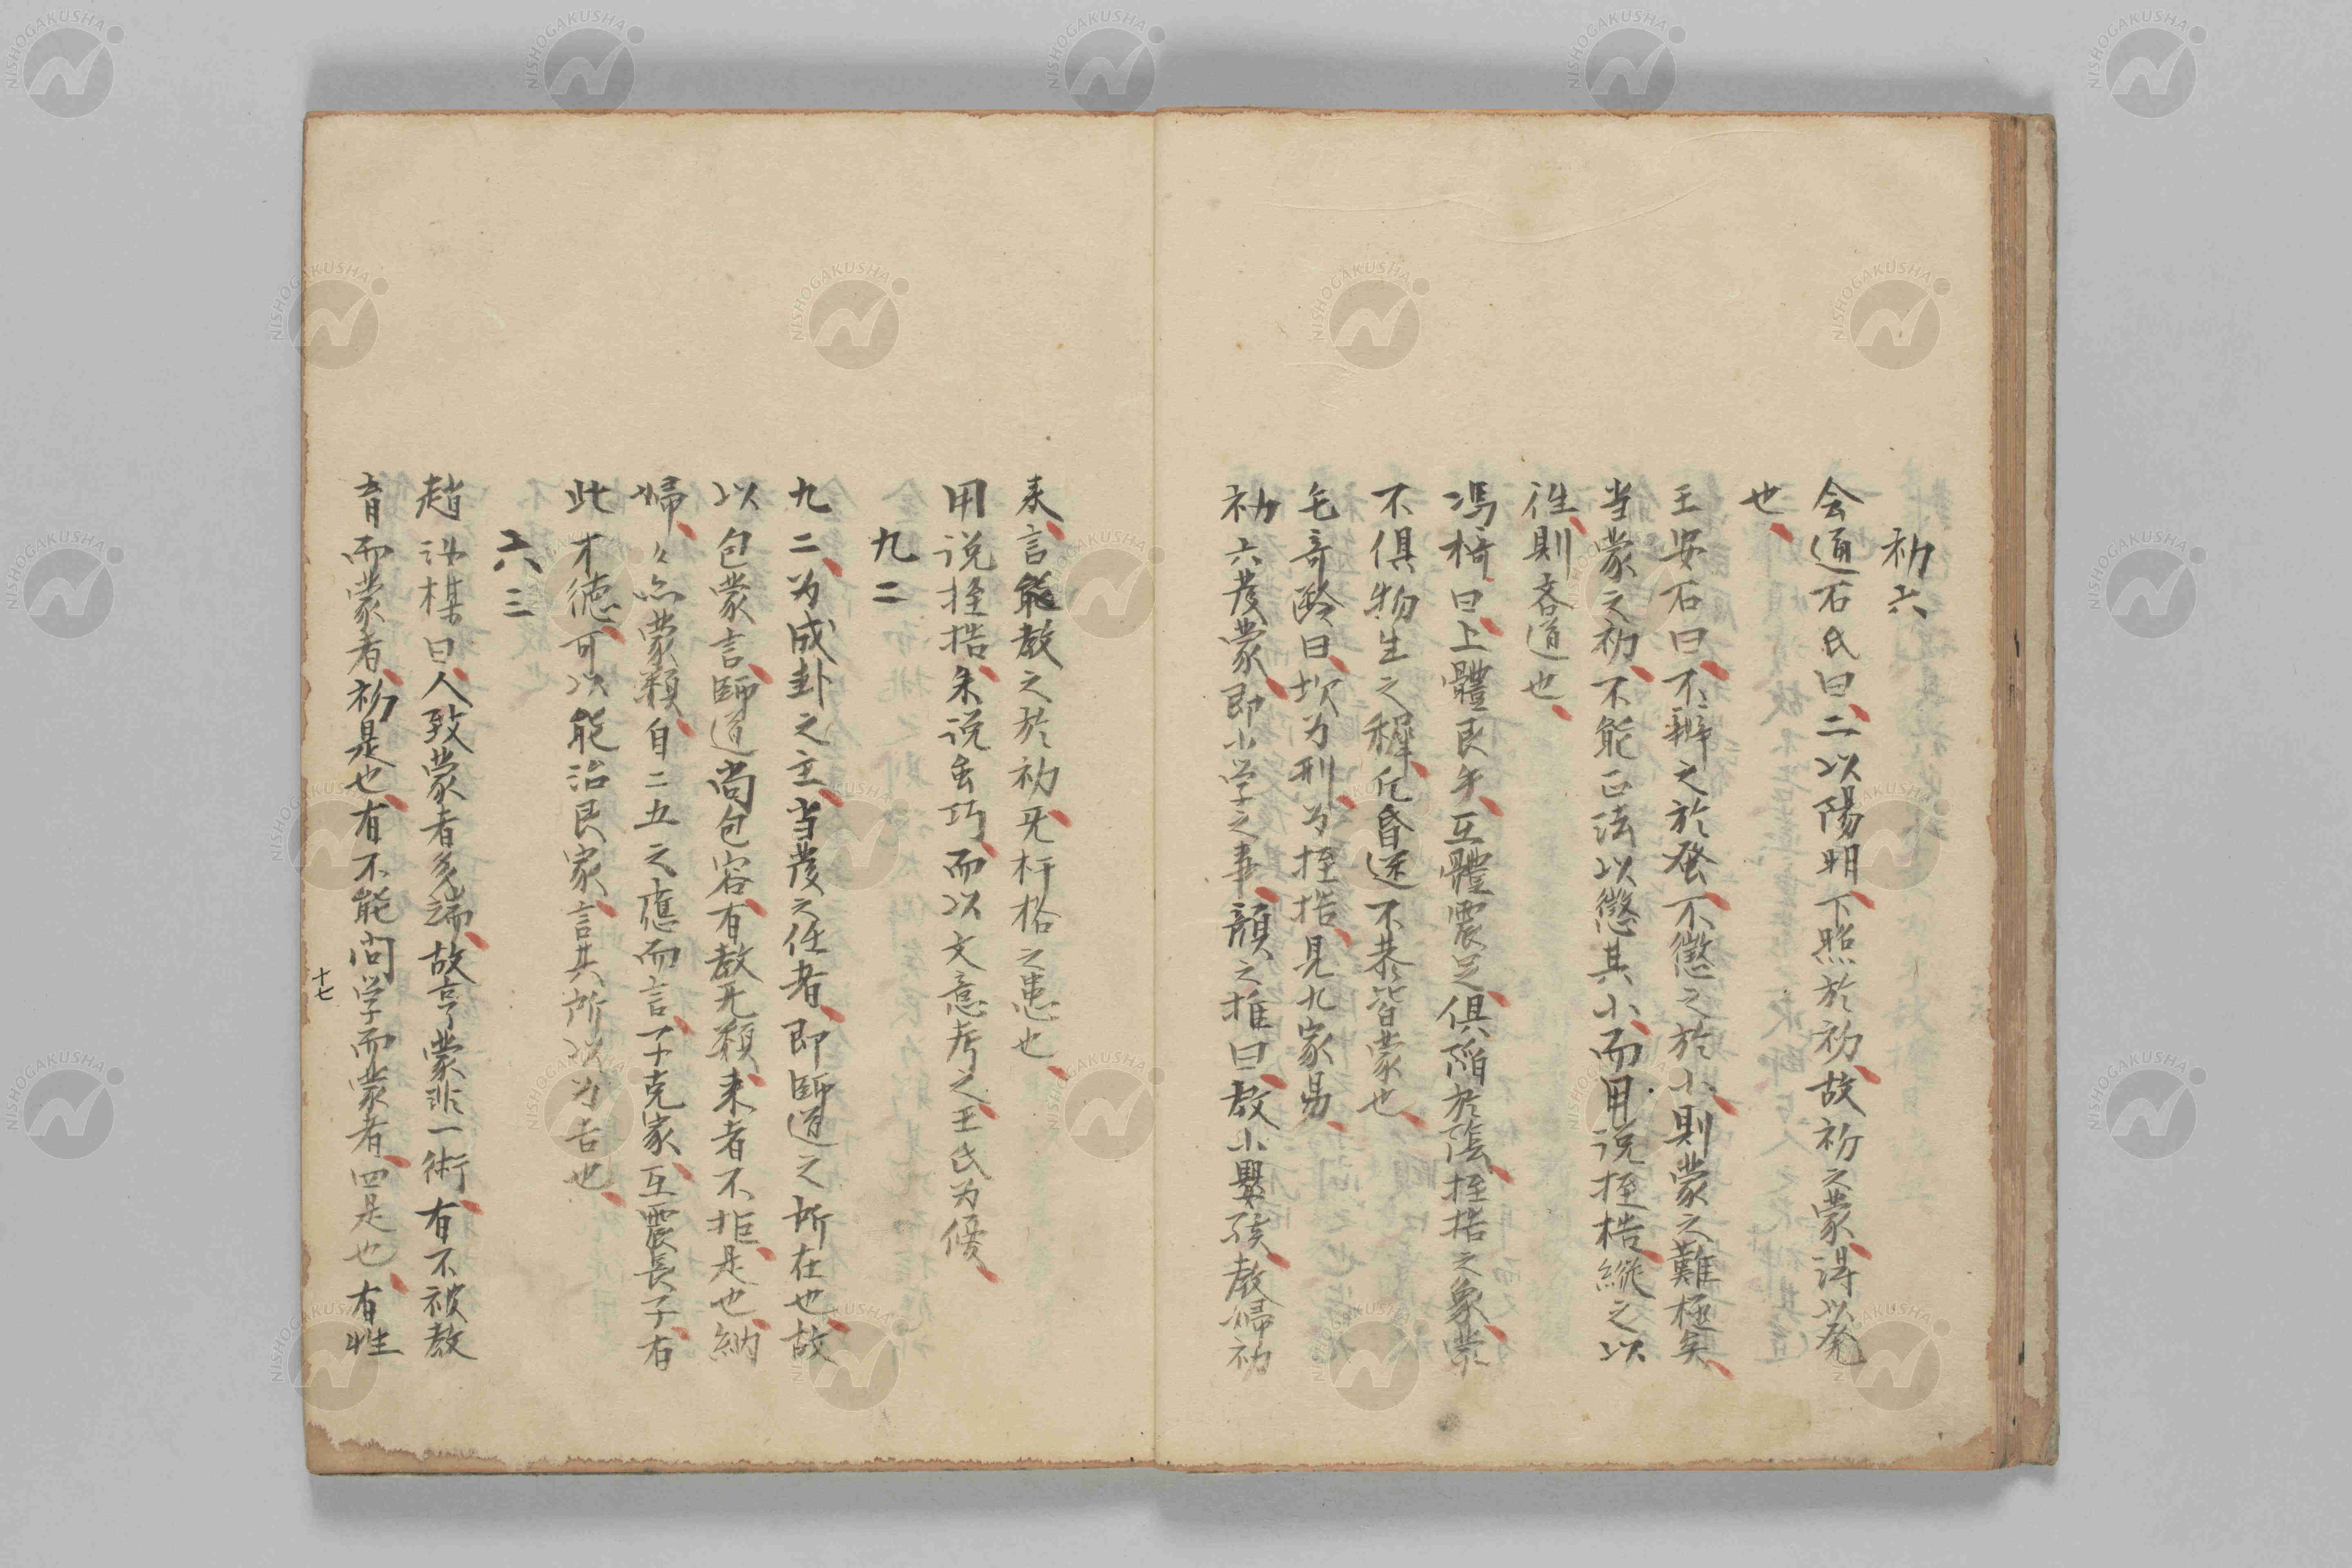 初六
会通石氏曰、二以陽明、下照於初、故初之蒙、得以発
也、
王安石曰、不辨之於蚤、不懲之於小、則蒙之難極矣、
当蒙之初、不能正法以懲其小、而用説桎梏、縦之以
往、則吝道也、
馮椅曰、上體艮手、互體震足、俱陥於陰、桎梏之象、蒙
不俱物生之穉、凡昏迷不恭、皆蒙也、
毛奇齡曰、坎为刑、为桎梏、見九家易、
初六発蒙、即小学之事、顔之推曰、教小嬰孩、教婦初
来、言能教之於初、无杆格之患也、
用説桎梏、朱説虽巧、而以文意考之、王氏为優、
九二
九二、为成卦之主、当発之任者、即師道之所在也、故
以包蒙言、師道尚包容、有教无類、来者不拒、是也、納
婦、々亦蒙類、自二五之應而言、子克家、互震長子、有
此才徳、可以能治艮家、言其所以为吉也、
六三
趙汝楳曰、人致蒙者多端、故亨蒙非一術、有不被教
育而蒙者、初是也、有不能问学而蒙者、四是也、有性
十七
NISHOGAKUSHA